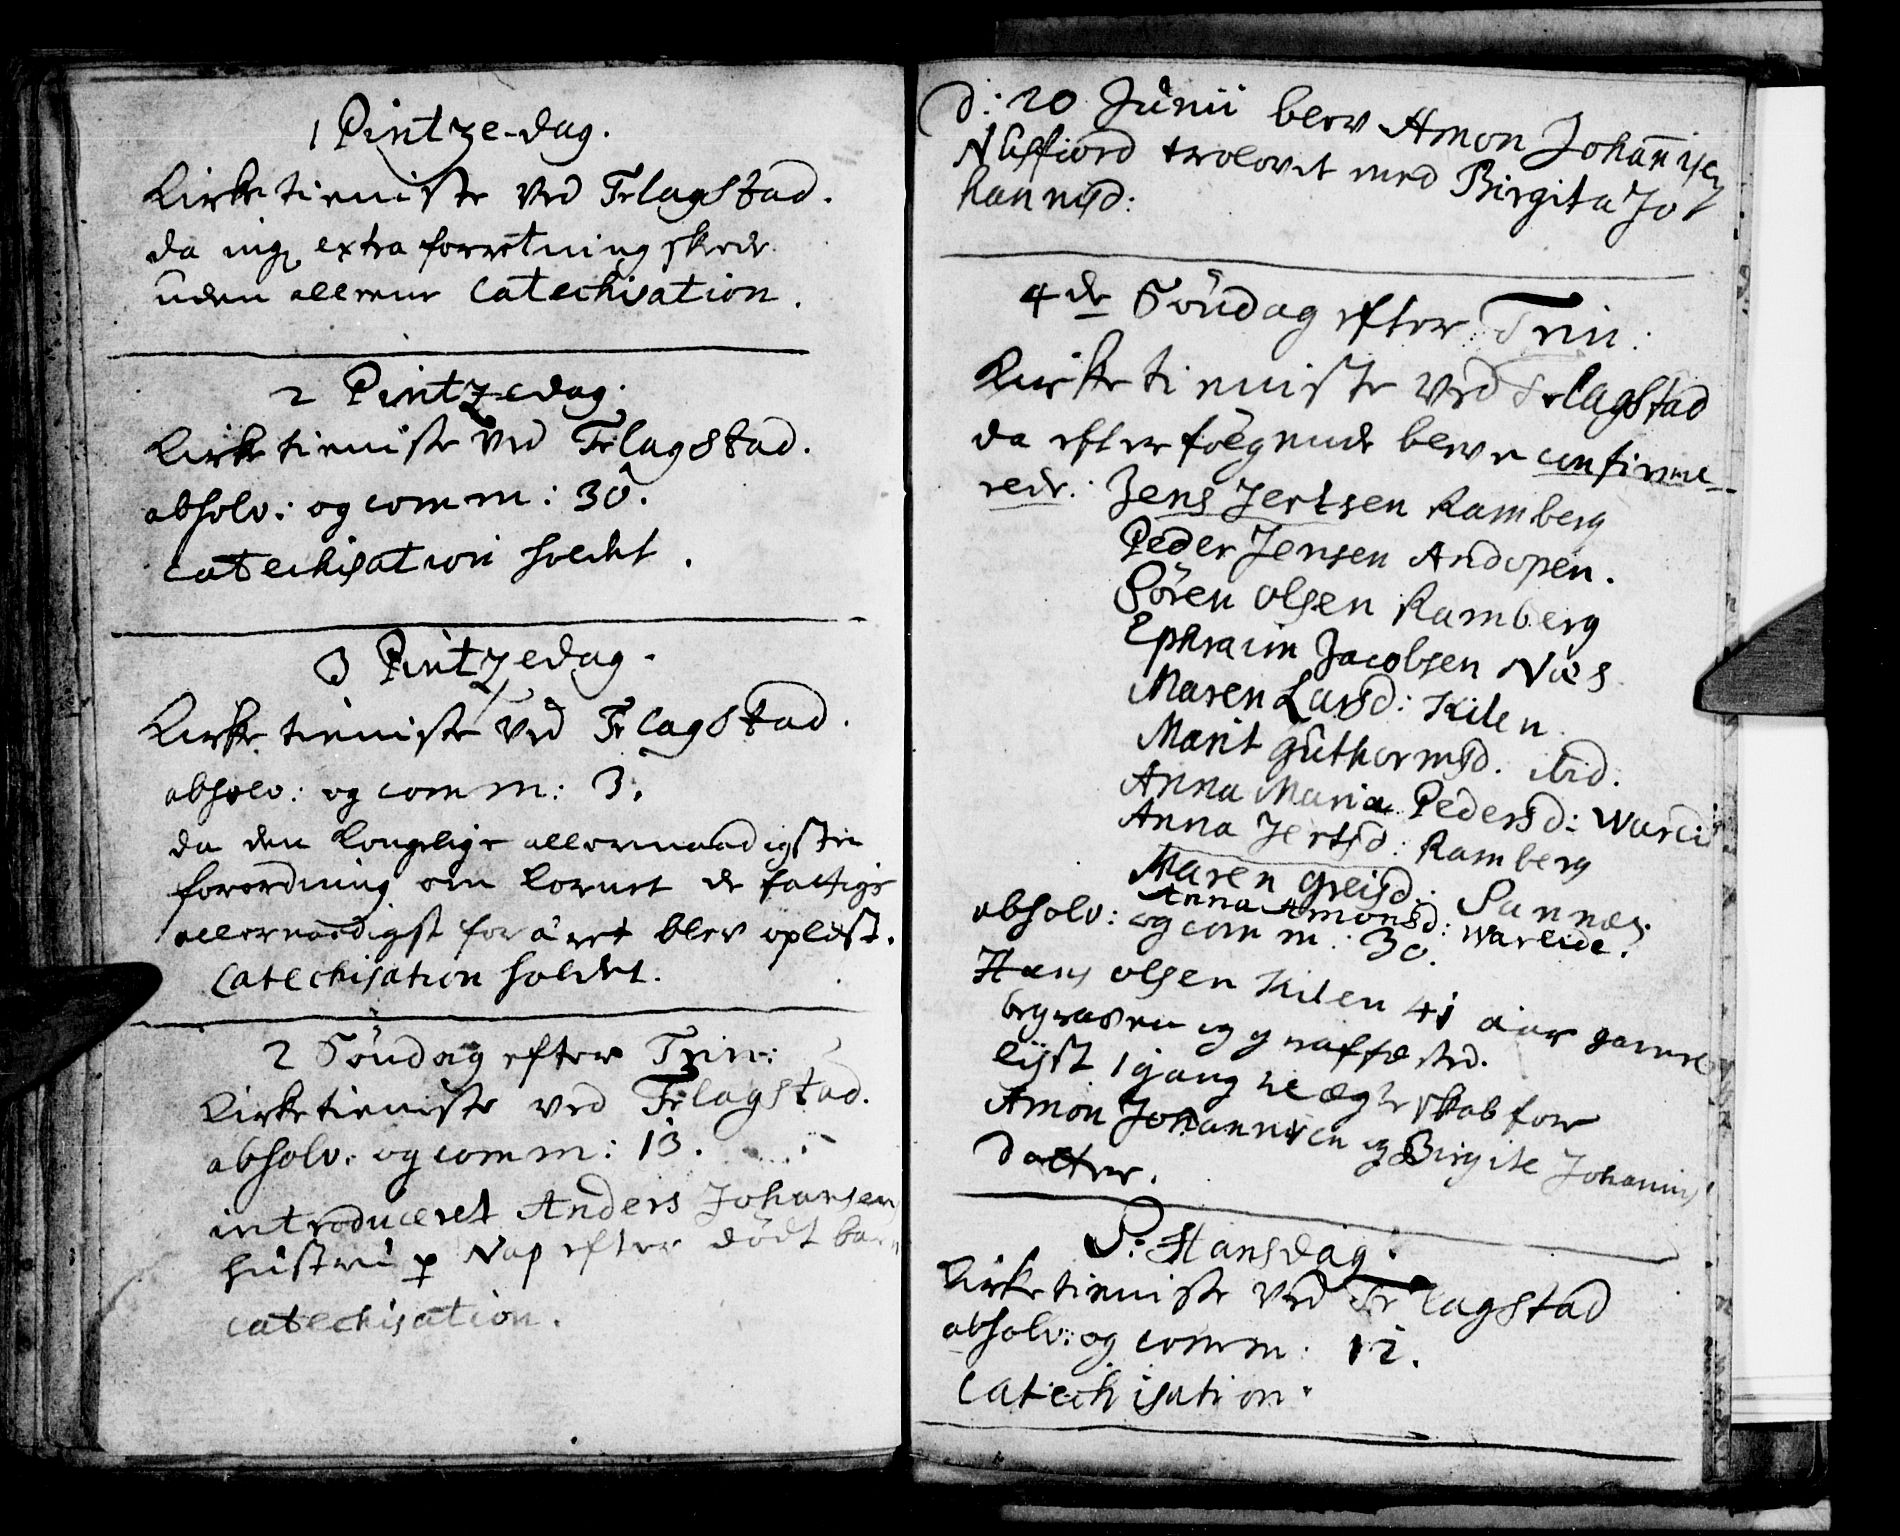 1 Pintze-dag.
Kirketieniste ved Flagstad.
da ing extra forretning skede
uden alleene Catechisation.
2 Pintzedag.
Kirketieniste ved Flagstad.
absolv: og comm: 30.
catechisation holdt.
3 Pintzedag.
Kirketieniste ved Flagstad.
absolv: og comm: 3.
da den kongelige allernaadigste
forordning om kornet de fattige
allernaadigst foräret blev oplæst.
Catechisation holdet.
2 Söndag efter Trin:
Kirketieniste ved Flagstad.
absolv. og comm: 13.
introduceret Anders Johansens
hustru p Nap efter dödt barn
catechisation.
d: 20 Junii blev Amon Johannisen
Nusfiord trolovet med Birgita Jo
hannisd:
4de Söndag efter Trin:
Kirketieniste ved Flagstad
da efterfölgende bleve confirme-
rede: Jens Jertsen Ramberg
Peder Jensen Andopen.
Sören Olsen Ramberg
Ephraim Jacobsen Næs
Maren Larsd: Kilen
Marit Guthormsd. ibid.
Anna Maria Pedersd: Wareid
Anna Jertsd: Ramberg
Maren Greisd: Sannæs.
Anna Amonsd: Wareide.
absolv: og comm: 30.
Hans Olsen Kilen 41 aar gammel
begraven og graffæsted.
lijst 1 gang til ægteskab for
Amon Johannisen og Birgite Johannis
datter.
S: Hansdag.
Kirketieniste ved Flagstad
absolv: og comm: 12.
Catechisation.